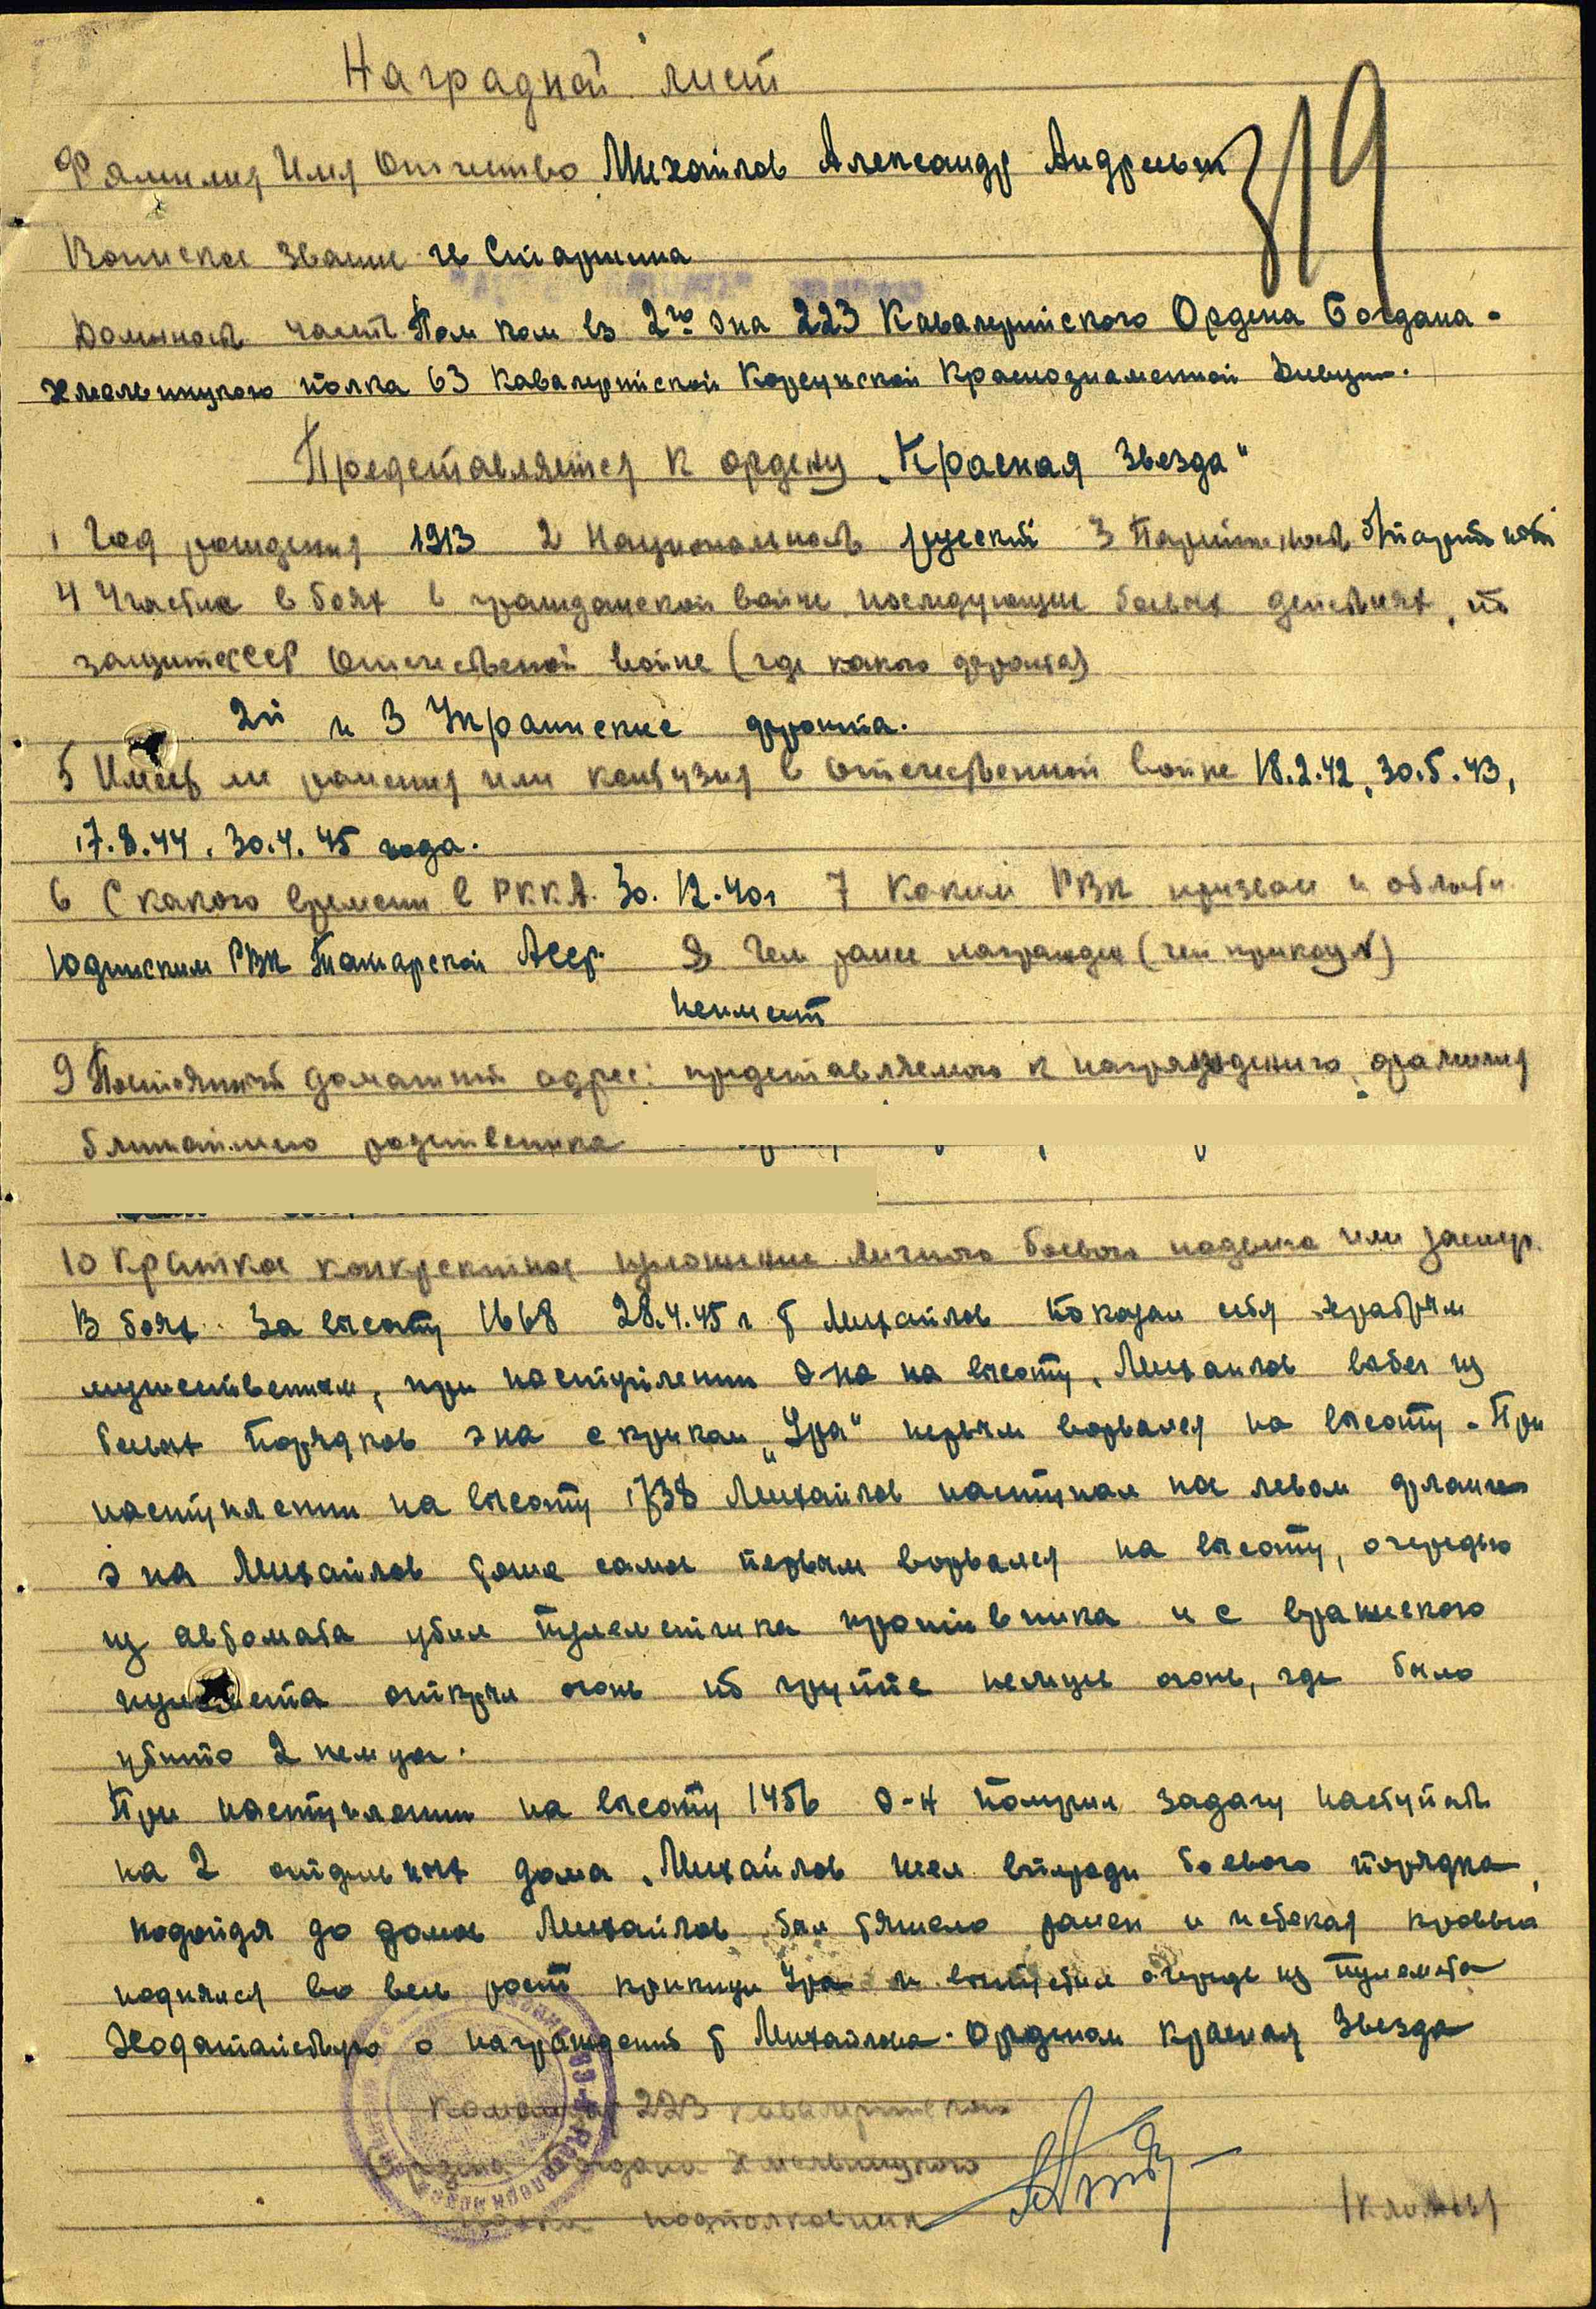 Наградной лист
319
Фамилия Имя Отчество Михайлов Александр Андреевич
Воинское звание гв Старшина
Должность часть Пом ком вз 2го э-на 223 Кавалерийского Ордена Богдана-
Хмельницкого полка 63 Кавалерийской Корсунской Краснознаменной Дивизии.
Представляется к ордену „Красная Звезда"
1 Год рождения 1913 2 Национальность русский 3 Партийность
4 Участие в боях в гражданской войне последующие боевых действиях, по
защите СССР Отечественой войне (где какого фронта)
2й и 3 Украинские фронта.
5 Имеет ли ранения или контузия в Отечественной войне 18.2.42, 30.5.43,
17.8.44, 30.4.45 года.
6 С какого времени в РККА. 30.12.40г 7 Каким РВК призван и области
Юдинским РВК Татарской Асср. 8 Чем ранее награжден (чей приказ №)
неимеет
9 Постоянный домашний адрес: представляемого к награждению, фамилия
ближайшего родственика
10 Краткое конкректное изложение личного боевого подвига или заслуг.
В боях за высоту 1668 28.4.45 г т Михайлов показал себя храбрым
мужественным, при наступлении э-на на высоту, Михайлов выбег из
боевых порядков э-на с криком „Ура" первым ворвался на высоту. При
наступлении на высоту 1738 Михайлов наступал на левом фланге
э-на Михайлов тоже самое первым ворвался на высоту, очередью
из автомата убил пулеметчика противника и с вражеского
пулемета открыл огонь по группе немцев огонь, где было
убито 2 немца.
При наступлении на высоту 1456 э-н получил задачу наступать
на 2 отдельных дома, Михайлов шел впереди боевого порядка,
подойдя до домов Михайлов был тяжело ранен и истекая кровью
поднялся во весь рост крикнул Ура и выпустил очередь из пулемета
Ходатайствую о награждений т Михайлова. Орденом Красная Звезда
Командир 223 кавалерийского
Ордена Богдана Хмельницкого
полка подполковник